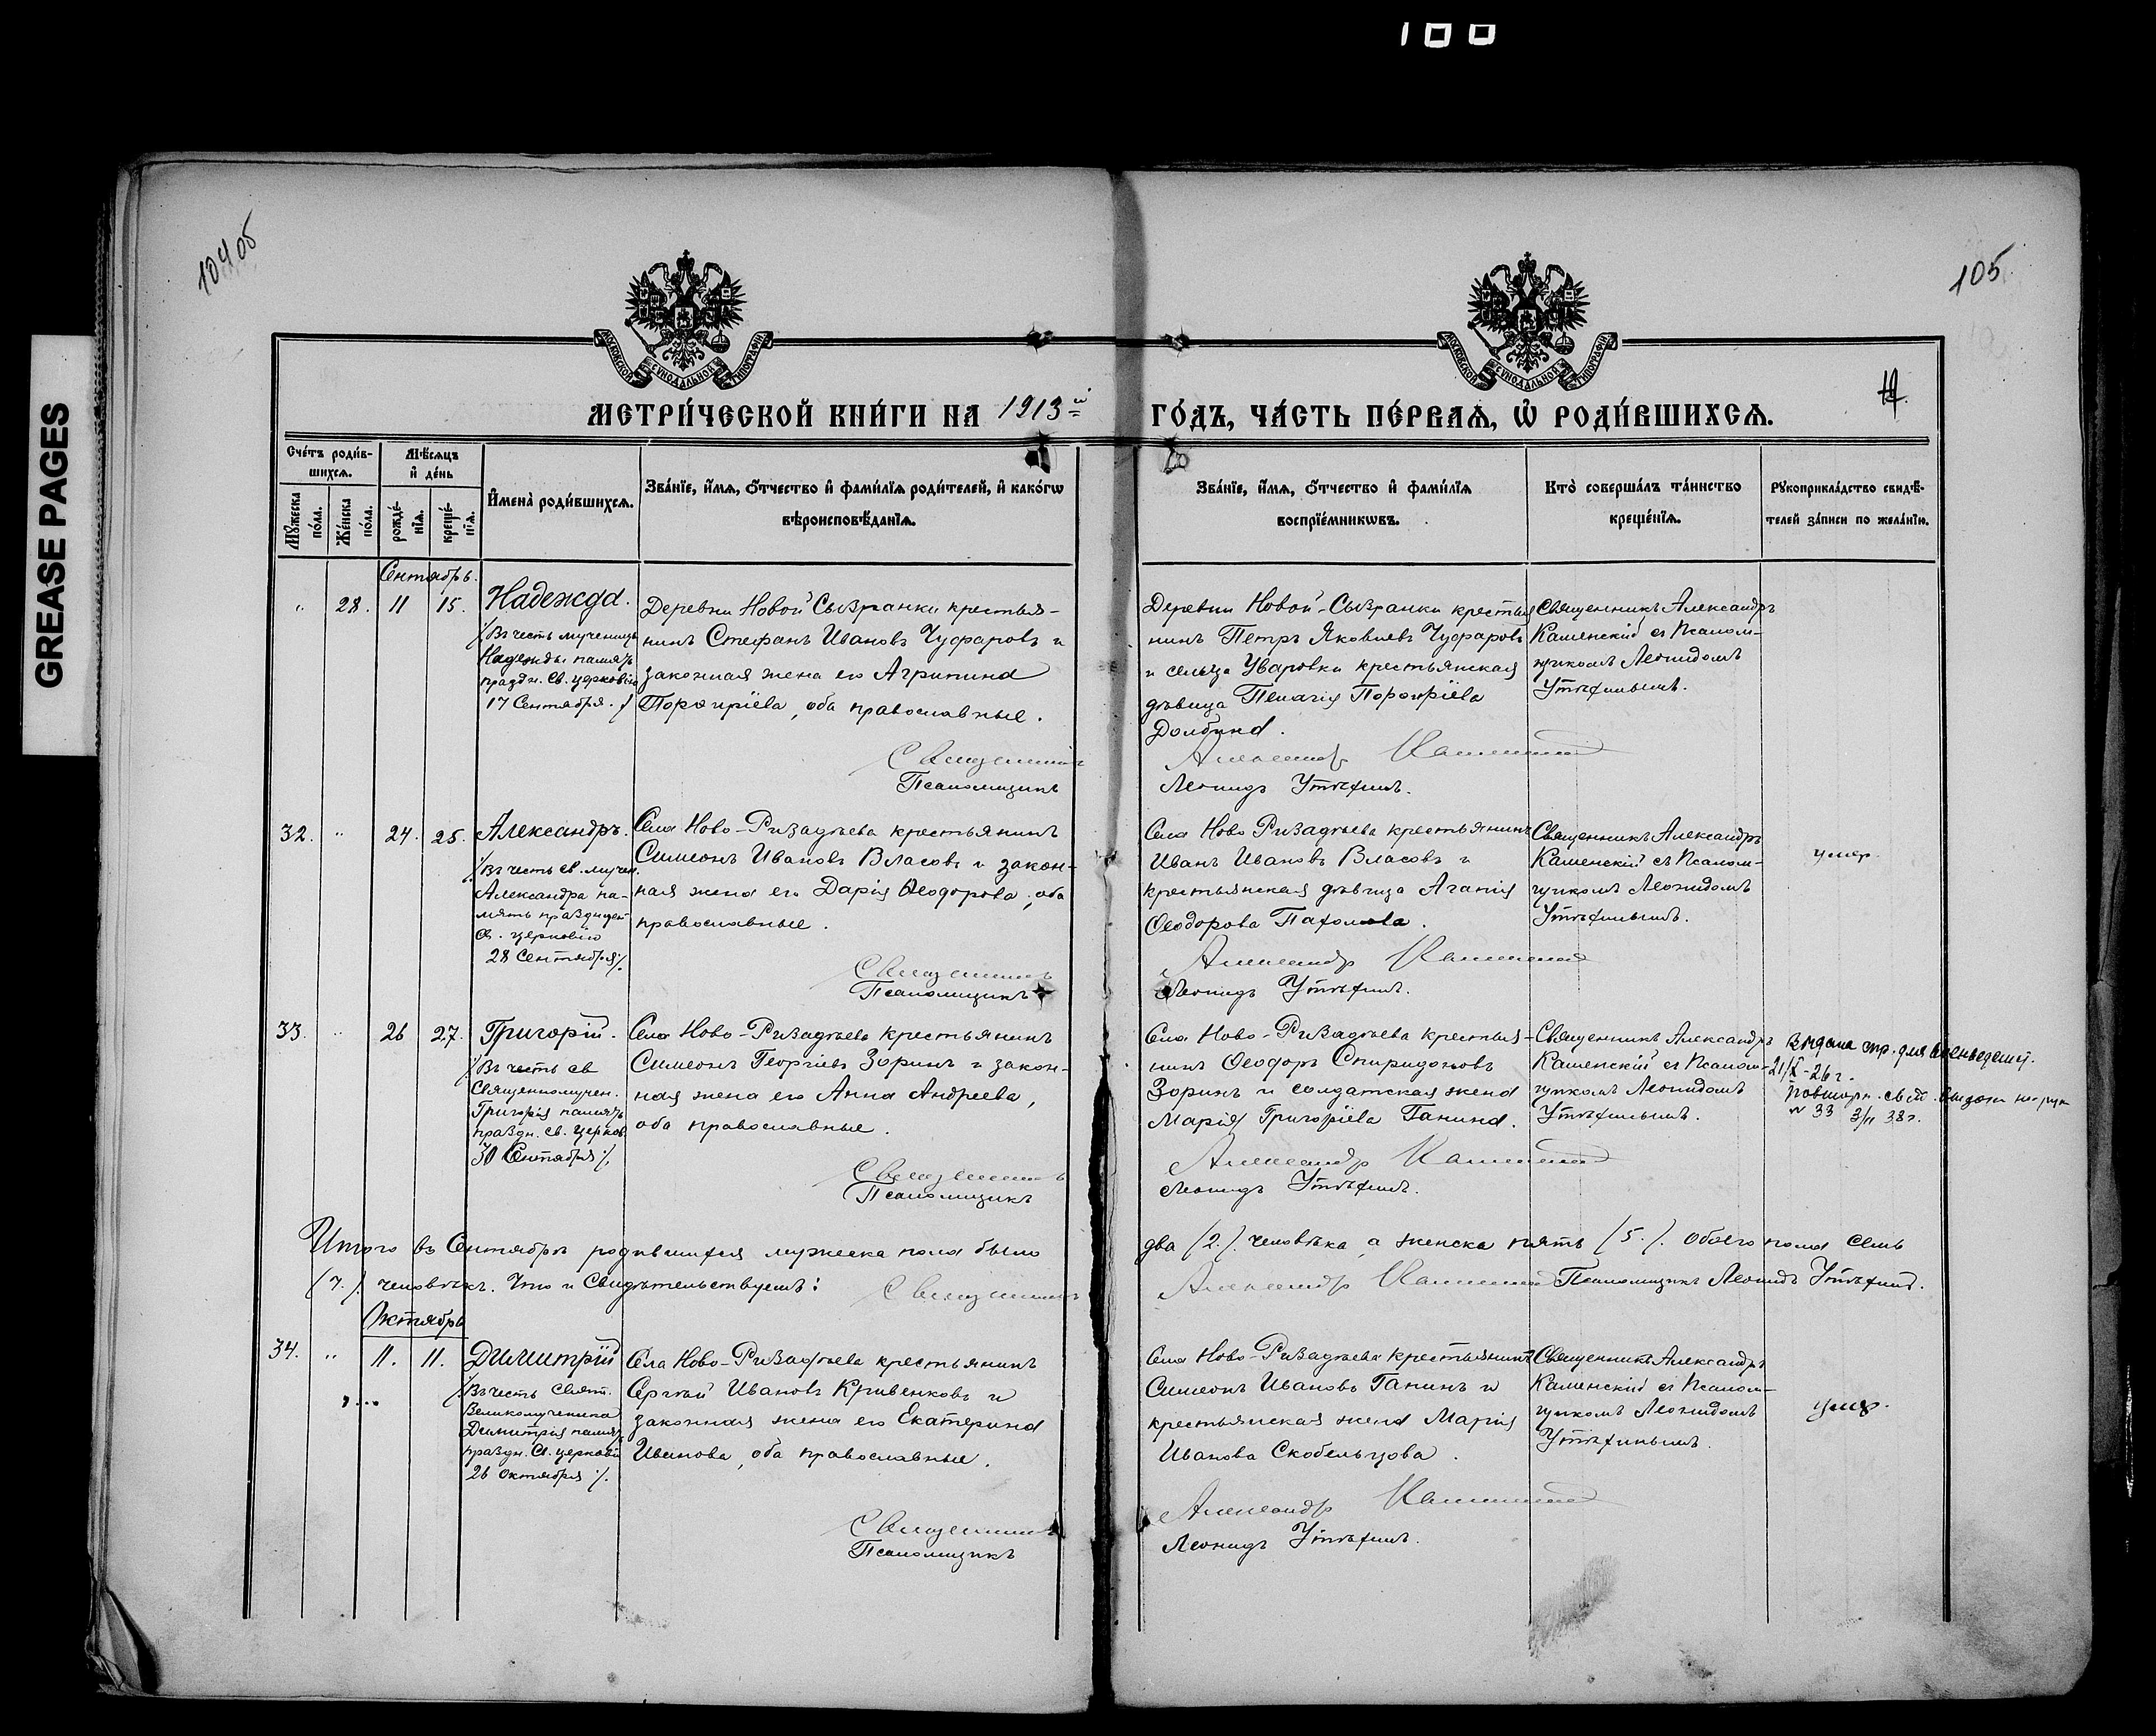 100
GREASE PAGES
104 об
105
МОСКОВСКОЙ СѴНОДАЛЬНОЙ ТИПОГРАФІИ
МОСКОВСКОЙ СѴНОДАЛЬНОЙ ТИПОГРАФІИ
МЕТРИ́ЧЕСКОЙ КНИ́ГИ НА 1913й ГО́ДЪ, ЧА́СТЬ ПЕ́РВАѦ, Ѡ҆ РОДИ́ВШИХСѦ.
Сче́тъ роди́в-
шихсѧ.
Мѣ́сяцъ
и҆ де́нь
Мꙋ́жеска по́ла.
Же́нска по́ла.
рожде́-
нїѧ.
креще́-
нїѧ.
И҆мена̀ роди́вшихсѧ.
Зва́нїе, и҆́мѧ, ѻ҆́тчество и҆ фами́лїѧ роди́телей, и҆ како́гѡ
вѣроисповѣ́данїѧ.
Зва́нїе, и҆́мѧ, ѻ҆́тчество и҆ фами́лїѧ
воспрїе́мникѡвъ.
Кто̀ соверша́лъ та́инство
креще́нїѧ.
Рꙋкоприкла́дство свидѣ́-
телей за́писи по жела́нїю.
Сентябрь.
" 28. 11 15.
Надежда.
Въ честь мученицы
Надежды память
праздн. Св. церковію
17 Сентября.
Деревни Новой Сызранки крестья-
нинъ Стефанъ Ивановъ Чуфаровъ и
законная жена его Агрипина
Порфиріева, оба православные.
Священникъ
Псаломщикъ
Деревни Новой-Сызранки крестья
нинъ Петръ Яковлевъ Чуфаровъ
и сельца Уваровки крестьянская
дѣвица Пелагія Порфиріева
Долбина.
Александр Каменский
Леонидъ Утѣхинъ.
Священникъ Александръ
Каменскій съ Псалом-
щикомъ Леонидомъ
Утѣхинымъ.
32. " 24. 25.
Александръ.
Въ честь св. мучен.
Александра па-
мять празднует
Св. церковію
28 Сентября
Села Ново-Ризадѣева крестьянинъ
Симеонъ Ивановъ Власовъ и закон-
ная жена его Дарія Ѳеодорова, оба
православные.
Священникъ
Псаломщикъ
Села Ново Ризадѣева крестьянинъ
Иванъ Ивановъ Власовъ и
крестьянская дѣвица Агапія
Ѳеодорова Пахомова.
Александр Каменский
Леонидъ Утѣхинъ.
Священникъ Александръ
Каменскій съ Псалом-
щикомъ Леонидомъ
Утѣхинымъ.
умер.
33. " 26 27.
Григорій.
Въ честь св
Священномучен.
Григорія память
праздн. св. церков.
30 Сентября
Села Ново-Ризадѣева крестьянинъ
Симеонъ Георгіевъ Зоринъ и закон-
ная жена его Анна Андреева,
оба православные.
Священникъ
Псаломщикъ
Села Ново-Ризадѣева крестья-
нинъ Ѳеодоръ Спиридоновъ
Зоринъ и солдатская жена
Марія Григоріева Ганина.
Александр Каменский
Леонидъ Утѣхинъ.
Священникъ Александръ
Каменскій съ Псалом-
щикомъ Леонидомъ
Утѣхинымъ.
Выдана спр. для
21/X-26 г.
Повторн. св.
№ 33 3/II 38 г.
Итого въ Сентябрѣ родившихся мужеска пола было два (2.). человѣка, а женска пять (5.). Обоего пола семь
(7.). человѣкъ. Что и свидѣтельствуемъ: Священникъ Александр Каменский Псаломщикъ Леонидъ Утѣхинъ.
Октябрь
34. " 11. 11.
Димитрій
Въ честь Свят.
Великомученика
Димитрія память
праздн. Св. церковію
26 Октября
Села Ново-Ризадѣева крестьянинъ
Сергѣй Ивановъ Кривенковъ и
законная жена его Екатерина
Иванова, оба православные.
Священникъ
Псаломщикъ
Села Ново-Ризадѣева крестьянинъ
Симеонъ Ивановъ Ганинъ и
крестьянская жена Марія
Иванова Скобельцова.
Александр Каменский
Леонидъ Утѣхинъ.
Священникъ Александръ
Каменскій съ Псалом-
щикомъ Леонидомъ
Утѣхинымъ.
умер.